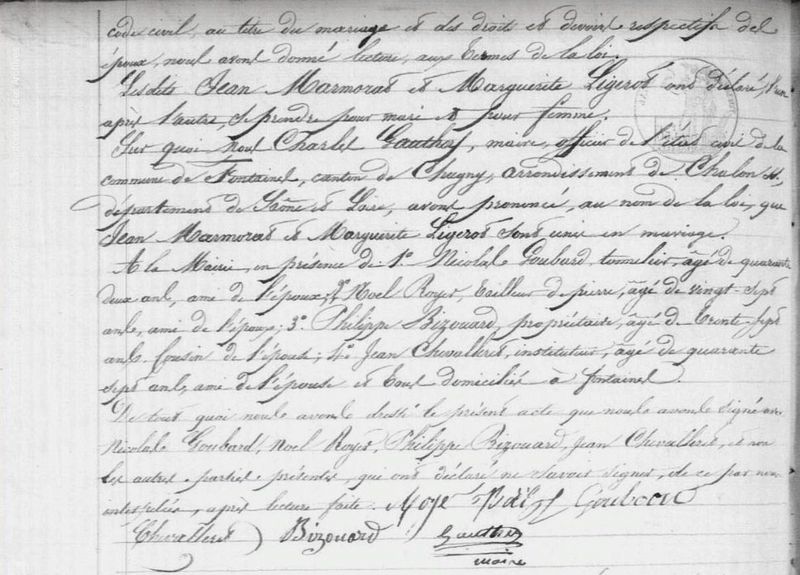 code civil, au titre du mariage et des droits et devoirs respectifs des
époux, nous avons donné lecture, aux termes de la loi.
Lesdits Jean Marmorat et Marguerite Ligerot ont déclaré, l'un
après l'autre, se prendre pour mari et pour femme.
Sur quoi nous Charles Gauthey, maire, officier de l'état civil de la
commune de Fontaines, canton de Chagny, arrondissement de Chalon
département de Saône et Loire, avons prononcé, au nom de la loi, que
Jean Marmorat et Marguerite Ligerot sont unis en mariage.
A la Mairie, en présence de 1º Nicolas Goubard, tonnelier, âgé de quarante
deux ans, ami de l'époux; 2º Noel Royer, tailleur de pierre, âgé de vingt-sept
ans, ami de l'époux; 3º Philippe Bizouard, propriétaire, âgé de trente-sept
ans, cousin de l'épouse; 4º Jean Chevalleret, instituteur, âgé de quarante
sept ans, ami de l'épouse et tous domiciliés à Fontaines.
De tout quoi nous avons dressé le présent acte que nous avons signé avec
Nicolas Goubard, Noel Royer, Philippe Bizouard, Jean Chevalleret, et non
les autres parties présentes, qui ont déclaré ne savoir signer, de ce par nous
interpellés, après lecture faite. Goubard
Chevalleret Bizouard Gauthey
maire